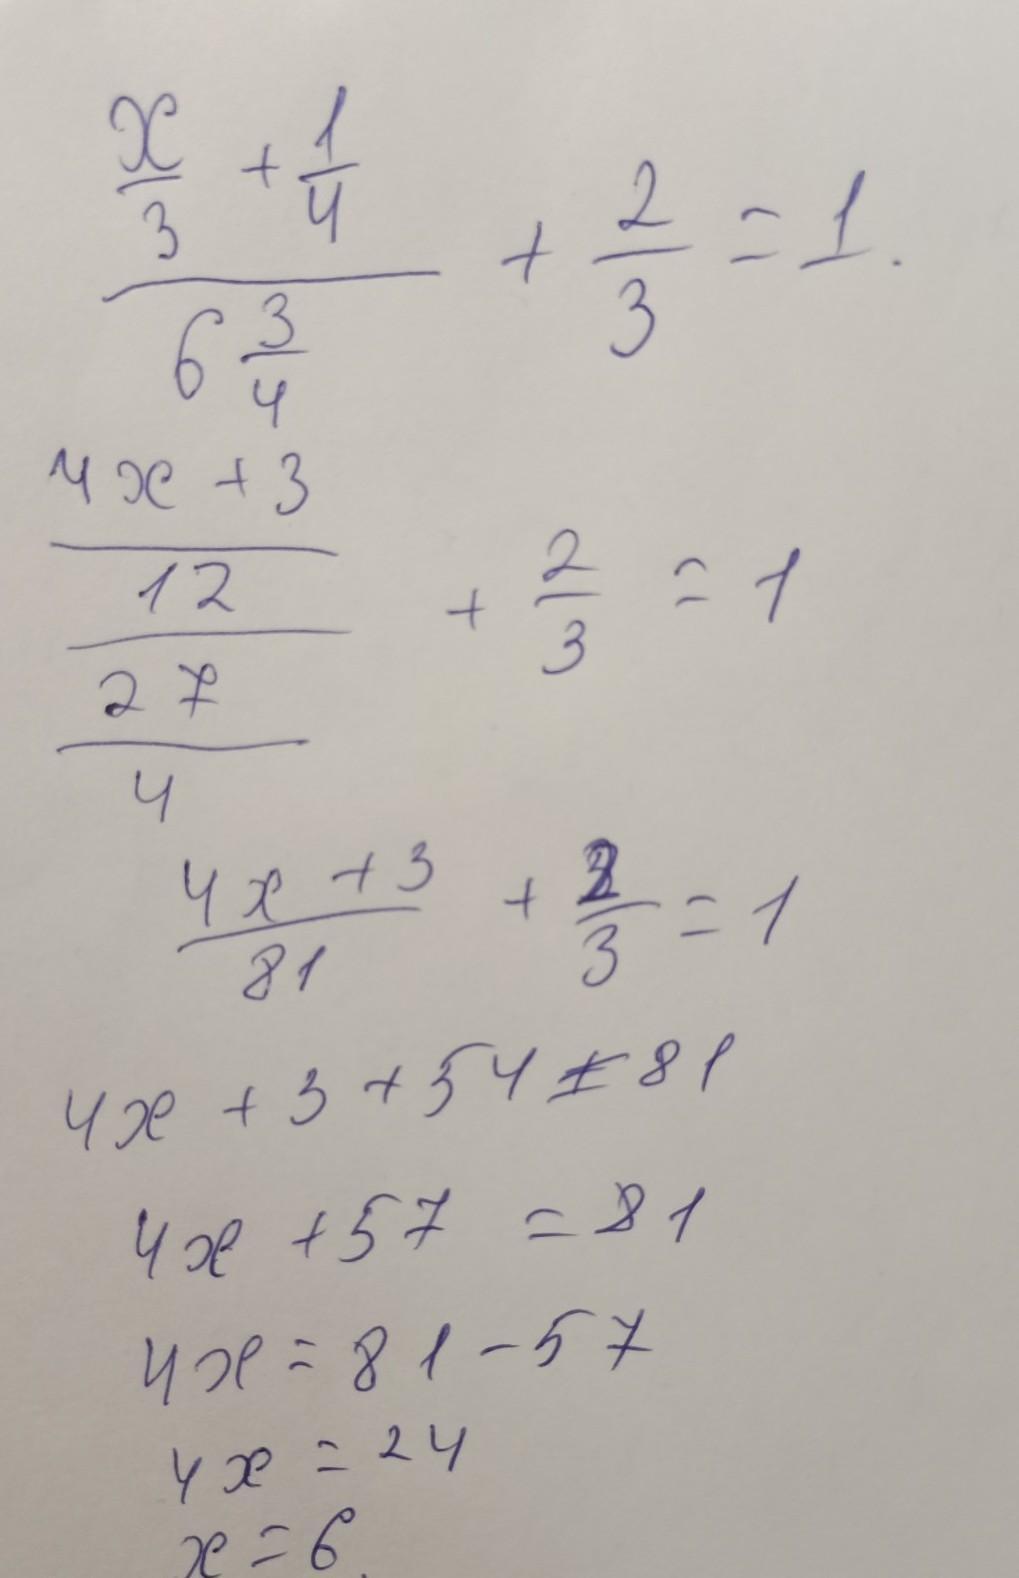 x/3 + 1/4 / 6 3/4 + 2/3 = 1.
4x + 3 / 12 / 27 / 4 + 2/3 = 1
4x + 3 / 81 + 2/3 = 1
4x + 3 + 54 = 81
4x + 57 = 81
4x = 81 - 57
4x = 24
x = 6.